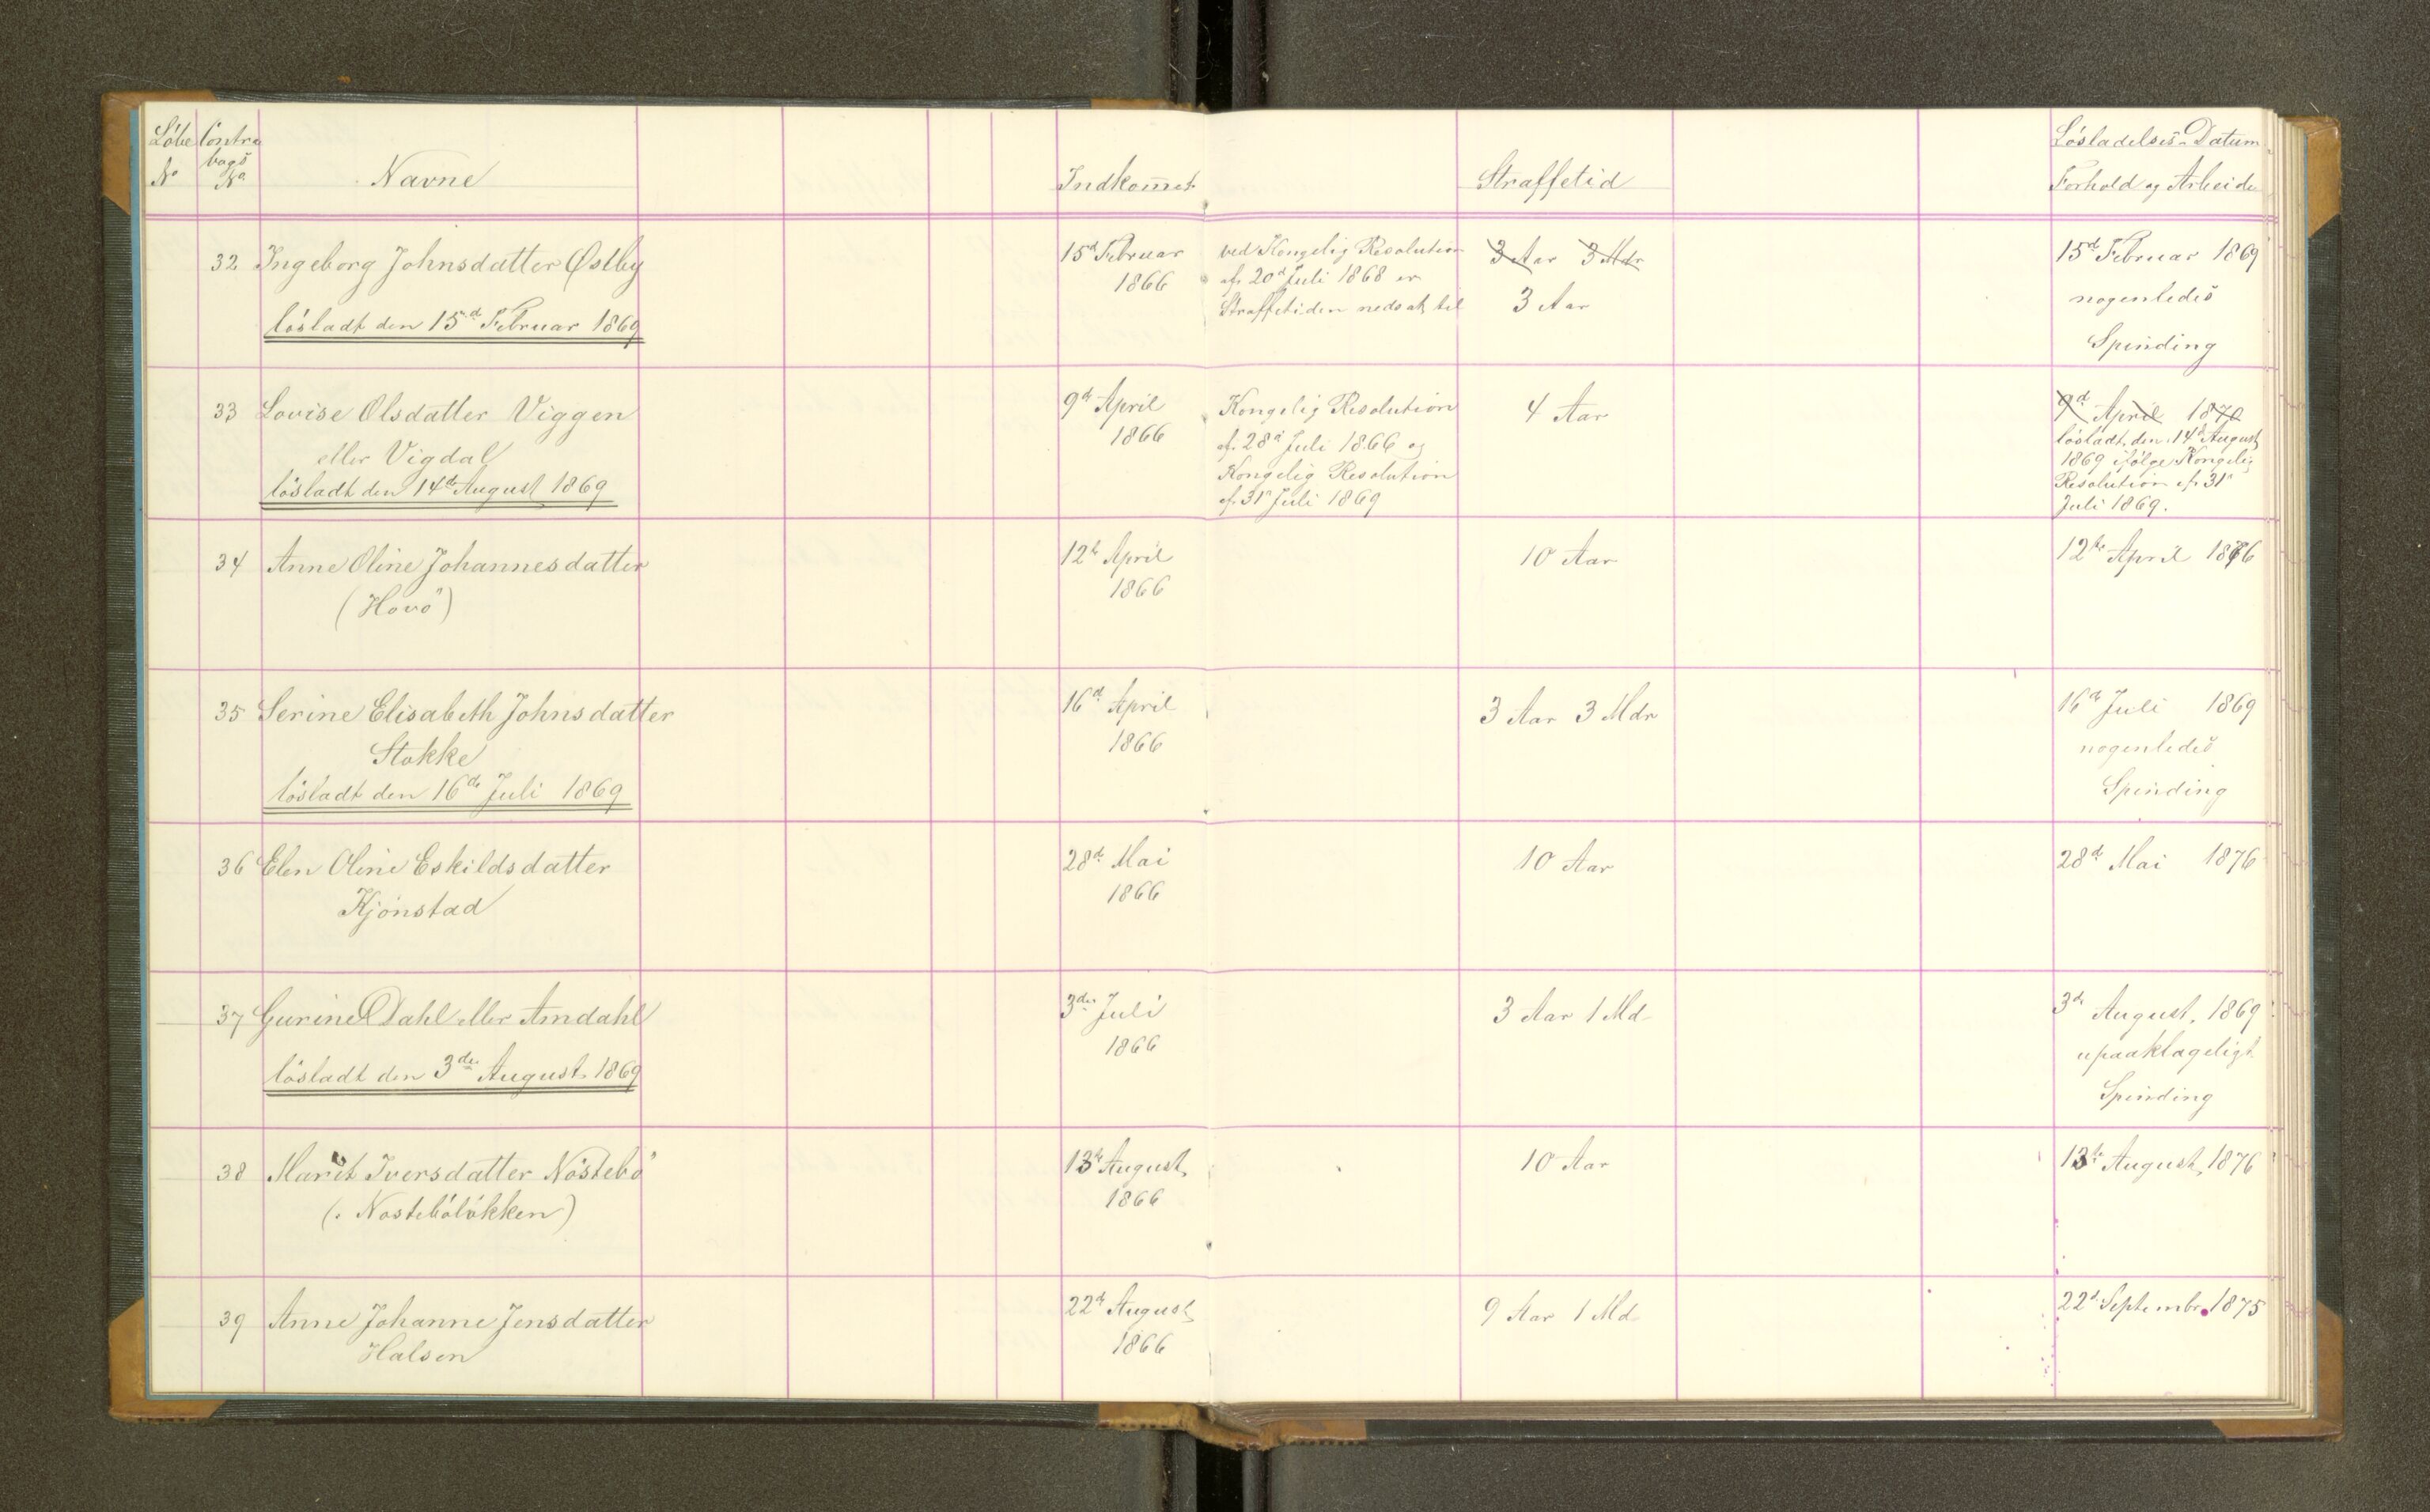 Løbe Contra
bogs
No No Navne Indkommet Straffetid Løsladelses-Datum
Forhold og Arbeide
32 Ingeborg Johnsdatter Østby 15d Februar 1866 ved Kongelig Resolution 3 Aar 3 Mdr 15d Februar 1869
af 20d Juli 1868 er
Straffetiden nedsat til 3 Aar nogenledes
løsladt den 15d Februar 1869 Spinding
33 Lovise Olsdatter Viggen 9de April 1866 Kongelig Resolution 4 Aar 9d April 1870
eller Vigdal af 28d Juli 1866 og løsladt den 14d August
løsladt den 14de August 1869 Kongelig Resolution 1869 ifølge Kongelig
af 31 Juli 1869 Resolution af 31
Juli 1869.
34 Anne Oline Johannesdatter 12te April 10 Aar 12te April 1876
(Hovö) 1866
35 Serine Elisabeth Johnsdatter 16d April 3 Aar 3 Mdr 16de Juli 1869
Stokke 1866 nogenledes
løsladt den 16de Juli 1869 Spinding
36 Elen Oline Eskildsdatter 28d Mai 10 Aar 28d Mai 1876
Kjönstad 1866
37 Gurine Dahl eller Amdahl 3die Juli 3 Aar 1 Md 3die August 1869
1866 upaaklageligt
løsladt den 3die August 1869 Spinding
38 Marit Iversdatter Nöstebö 13te August 10 Aar 13te August 1876
(Nöstebölökken) 1866
39 Anne Johanne Jensdatter 22de August 9 Aar 1 Md 22d Septembr 1875
Halsen 1866